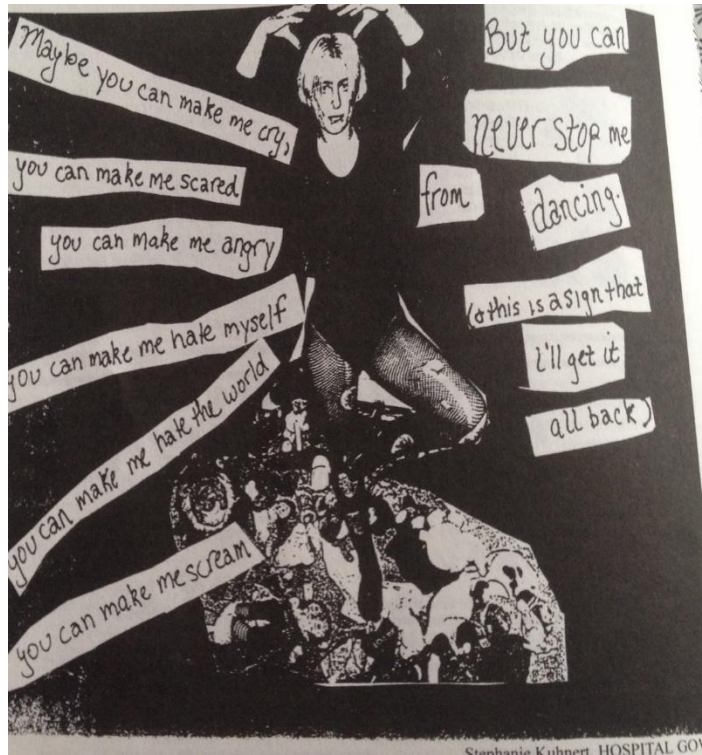 Maybe you can make me cry,
you can make me scared
you can make me angry
you can make me hate myself
you can make me hate the world
you can make me scream
But you can
never stop me
from
dancing.
(& this is a sign that
i'll get it
all back)
Stephanie Kuhnert, HOSPITAL